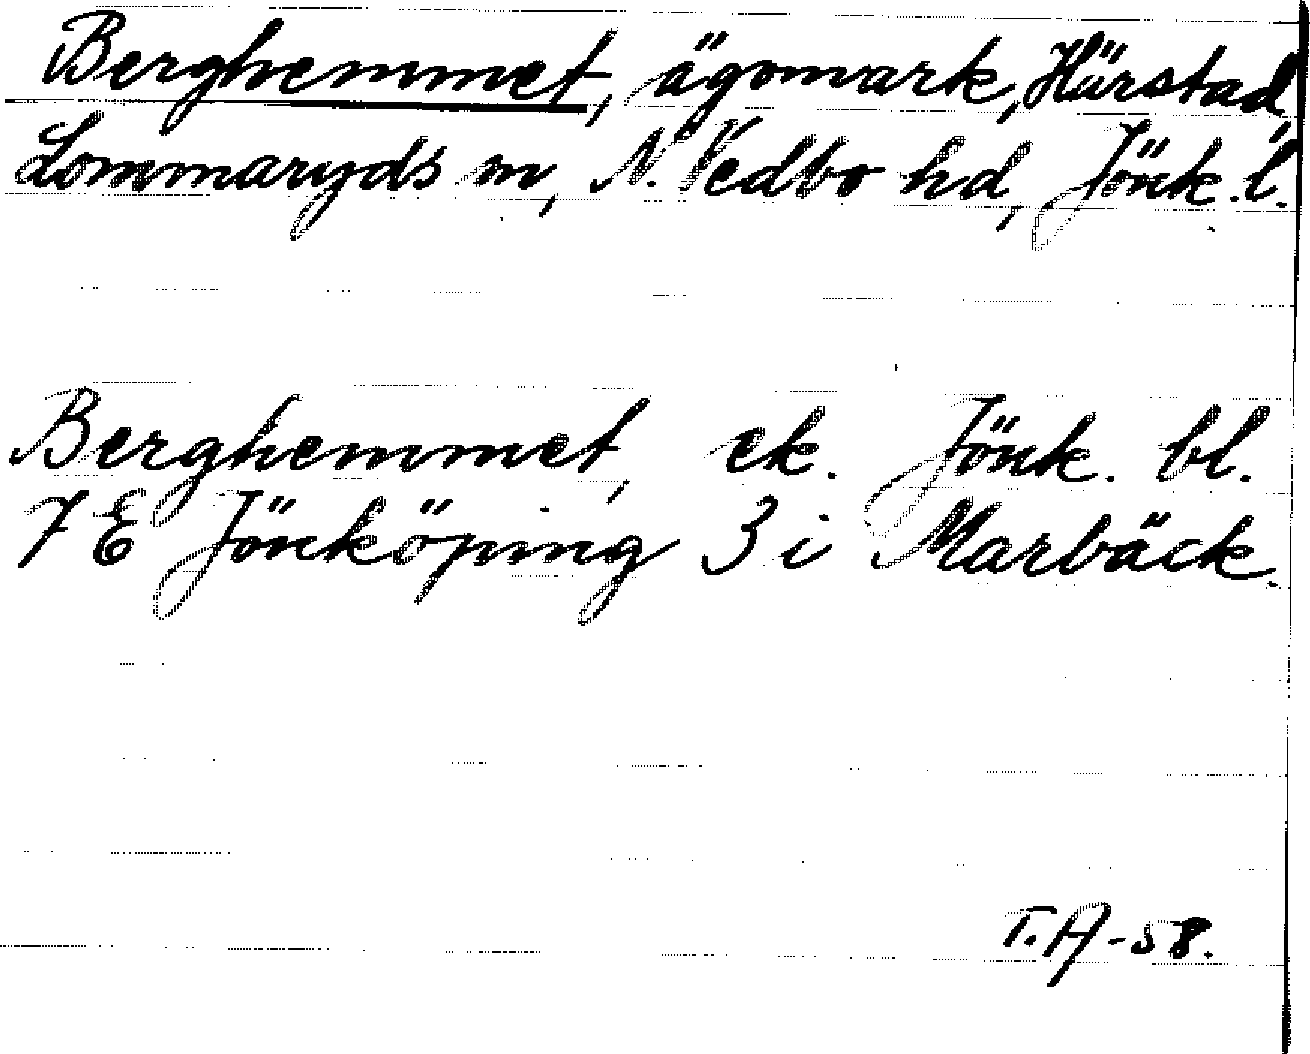 Berghemmet, ägomark, Härstad,
Lommaryds sn, N. Vedbo hd, Jönk. l.
Berghemmet, ek. Jönk. bl.
7 E Jönköping 3 i Marbäck.
T.A-58.